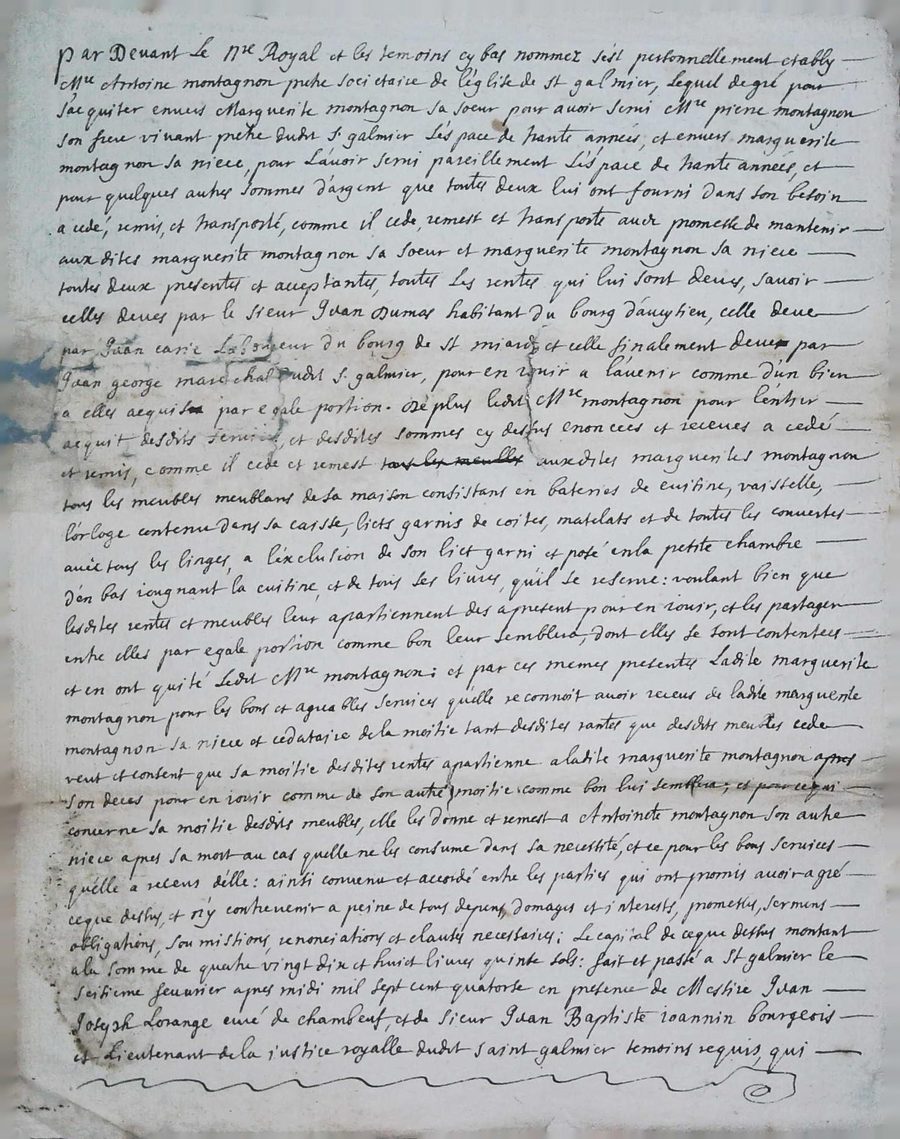 par Devant Le nre Royal et les temoins cy bas nommez s'est personnellement etably
Mre Antoine montagnon pretre societaire de l'eglise de st galmier, Lequel de gré pour
s'acquiter envers Marguerite montagnon sa soeur pour avoir servi Mre pierre montagnon
son frere vivant pretre dudit st galmier L'espace de trante années, et envers marguerite
montagnon sa niece, pour L'avoir servi pareillement L'espace de trante années, et
pour quelques autres sommes d'argent que toutes deux lui ont fourni dans son besoin
a cedé, remis, et transporté, comme il cede, remest et transporte avec promesse de mantenir
aux dites marguerite montagnon sa soeur et marguerite montagnon sa niece
toutes deux presentes et acceptantes, toutes Les rentes qui lui sont deues, savoir
celles deues par le sieur Jean Dumas habitant du bourg d'aveytieu, celle deue
par Jean carie Laboureur du bourg de st miard, et celle finalement deue par
Jean george marechal dudit st galmier, pour en jouir a l'avenir comme d'un bien
a elles acquis par egale portion. De plus ledit Mre montagnon pour l'entier
acquit desdits services, et desdites sommes cy dessus enoncées et receues a cedé
et remis, comme il cede et remest tous les meubles auxdites marguerites montagnon
tous les meubles meublans de sa maison consistans en bateries de cuisine, vaisselle,
l'orloge contenue dans sa caisse, licts garnis de coites, matelats et de toutes les couvertes
avec tous les linges, a l'exclusion de son lict garni et posé en la petite chambre
d'en bas iougnant la cuisine, et de tous ses livres, qu'il se reserve: voulant bien que
lesdites rentes et meubles leur apartiennent des apresent pour en iouir, et les partager
entre elles par egale portion comme bon leur semblera, dont elles se sont contentées
et en ont quité Ledit Mre montagnon: et par ces memes presentes Ladite marguerite
montagnon pour les bons et agreables services qu'elle reconnoit avoir receus de ladite marguerite
montagnon sa niece et cedataire de la moitie tant desdites rantes que desdits meubles cede
veut et consent que sa moitie desdites rentes apartienne a ladite marguerite montagnon apres
son deces pour en iouir comme de son autre moitie comme bon lui semblera; et pour ce qui
concerne sa moitie desdits meubles, elle les donne et remest a Antoinete montagnon son autre
niece apres sa mort au cas quelle ne les consume dans sa necessité, et ce pour les bons services
qu'elle a receus d'elle: ainsi convenu et accordé entre les parties qui ont promis avoir a gré
ceque dessus, et n'y contrevenir a peine de tous depens, domages et interests, promesses, sermens
obligations, soumissions renonciations et clauses necessaires; Le capital de ceque dessus montant
a la somme de quatre vingt dix et huict livres quinte sols: fait et passé a st galmier le
seitieme fevrier apres midi mil sept cent quatorse en presence de Messire Jean
Joseph Lorange curé de chambeuf, et de sieur Jean Baptiste ioannin bourgeois
et Lieutenant de la justice royalle dudit saint galmier temoins requis, qui